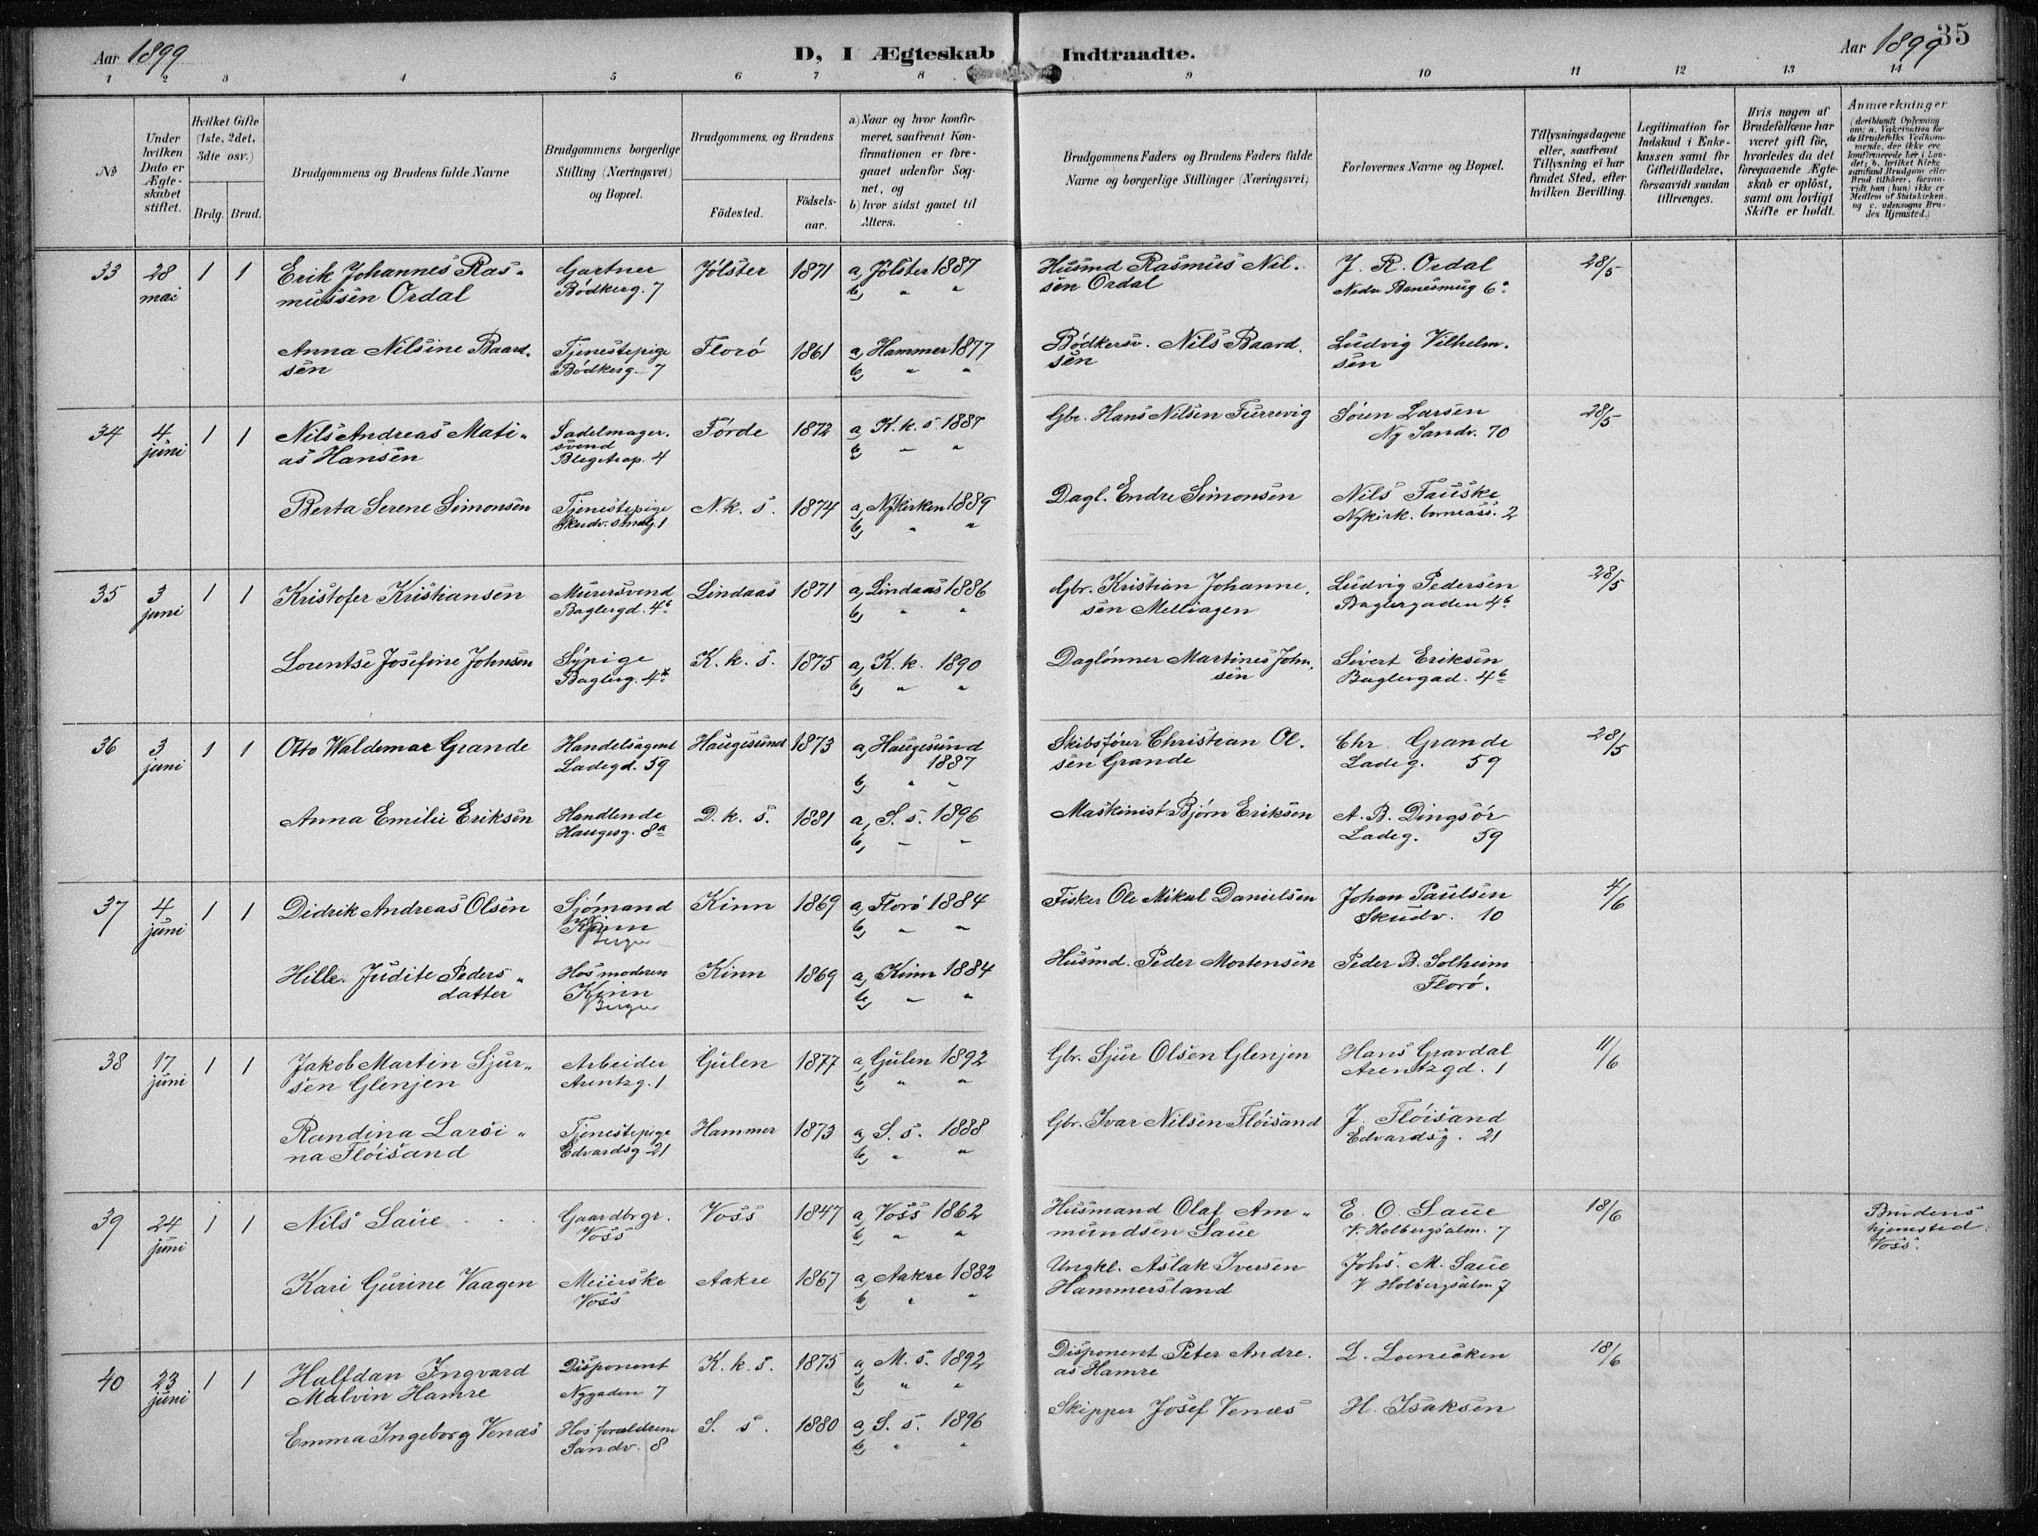 Aar 1899
D, I Ægteskab Indtraadte.
Aar 1899
35
1 2 3 4 5 6 7 8 9 10 11 12 13 14
No
Under hvilken Dato er Ægteskabet stiftet.
Hvilket Gifte (1ste, 2det, 3dte osv.)
Brdg. Brud.
Brudgommens og Brudens fulde Navne
Brudgommens borgerlige Stilling (Næringsvei) og Bopæl.
Brudgommens og Brudens
Födested.
Födselsaar.
a) Naar og hvor konfirmeret, saafremt Konfirmationen er foregaaet udenfor Sognet, og
b) hvor sidst gaaet til Alters.
Brudgommens Faders og Brudens Faders fulde Navne og borgerlige Stillinger (Næringsvei)
Forlovernes Navne og Bopæl.
Tillysningsdagene eller, saafremt Tillysning ei har fundet Sted, efter hvilken Bevilling.
Legitimation for Indskud i Enkekassen samt for Giftetilladelse, forsaavidt saadan tiltrænges.
Hvis nogen af Brudefolkene har været gift för, hvorledes da det foregaaende Ægteskab er oplöst, samt om lovligt Skifte er holdt.
Anmærkninger
(deriblandt Oplysning om: a. Vakcination for de Brudefolks Vedkommende, der ikke ere konfirmerede her i Landet; b. hvilket Kirkesamfund Brudgom eller Brud tilhörer, forsavidt han (hun) ikke er Medlem af Statskirken, og c. udensogns Brudes Hjemsted.)
33 28 mai 1 1 Erik Johannes Rasmussen Ordal Gartner Bødkerg. 7 Jølster 1871 a, Jølster 1887 b, " " Husmd Rasmus Nilsen Ordal J. R. Ordal 28/5
Anna Nilsine Baardsen Tjenestepige Bødkerg. 7 Florö 1861 a, Hammer 1877 b, " " Bødkersv. Nils Baardsen Ludvig Vilhelmsen
34 4 juni 1 1 Nils Andreas Matias Hansen Sadelmagersvend 4 Förde 1872 a, K.k.s. 1887 b, " " Gbr. Hans Nilsen Furrevig Sören Larsen Ny Sandv. 70 28/5
Berta Serene Simonsen Tjenestepige N.k.s. 1874 a, Nykirken 1889 b, " " Dagl. Endre Simonsen Nils Fauske Nykirk. 2
35 3 juni 1 1 Kristofer Kristiansen Murersvend Baglergd. 4b Lindaas 1871 a, Lindaas 1886 b, " " Gbr. Kristian Johannesen Mellingen Ludvig Pedersen Baglergaden 4b 28/5
Lorentse Josefine Johnsen Sypige Baglerg. 4b K.k.s. 1875 a, K.k. 1890 b, " " Daglønner Martines Johnsen Sivert Eriksen Baglergad. 4b
36 3 juni 1 1 Otto Waldemar Grande Handelsagent Ladegd. 59 Haugesund 1873 a, Haugesund 1887 b, " " Skibsfører Christian Olsen Grande Chr. Grande Ladeg. 59 28/5
Anna Emilie Eriksen Handlende Haugesg. 8a D.k.s. 1881 a, S.s. 1896 b, " " Maskinist Bjørn Eriksen A. B. Dingsör Ladeg. 59
37 4 juni 1 1 Didrik Andreas Olsen Sjömand Kinn Bergen Kinn 1869 a, Florö 1884 b, " " Fisker Ole Mikal Danielsen Johan Paulsen Skudv. 10 4/6
Hille Judite Pedersdatter Hos moderen Kinn Bergen Kinn 1869 a, Kinn 1884 b, " " Husmd. Peder Mortensen Peder B. Solheim Florö.
38 17 juni 1 1 Jakob Martin Sjursen Glenjen Arbeider Arentzg. 1 Gulen 1877 a, Gulen 1892 b, " " Gbr. Sjur Olsen Glenjen Hans Gravdal Arentzgd. 1 11/6
Randina Larsina Flöisand Tjenestepige Edvardsg. 21 Hammer 1873 a, S.s. 1888 b, " " Gbr. Ivar Nilsen Flöisand J. Flöisand Edvardsg. 21
39 24 juni 1 1 Nils Saue Gaardbrgr. Voss Voss 1847 a, Voss 1862 b, " " Husmand Olaf Ammundsen Saue E. O. Saue V. Holbergsalm. 7 18/6 Brudens hjemsted Voss.
Kari Gurine Vaagen Meierske Voss Aakre 1867 a, Aakre 1882 b, " " Ungkl. Aslak Iversen Hammersland Johs. M. Saue V. Holbergsalm. 7
40 23 juni 1 1 Halfdan Ingvard Malvin Hamre Disponent Nygaden 7 K.k.s. 1875 a, M.s. 1892 b, " " Disponent Peter Andreas Hamre L. 18/6
Emma Ingeborg Venæs Hos forældrene Sandv. 8 S.s. 1880 a, S.s. 1896 b, " " Skipper Josef Venæs H. Isaksen